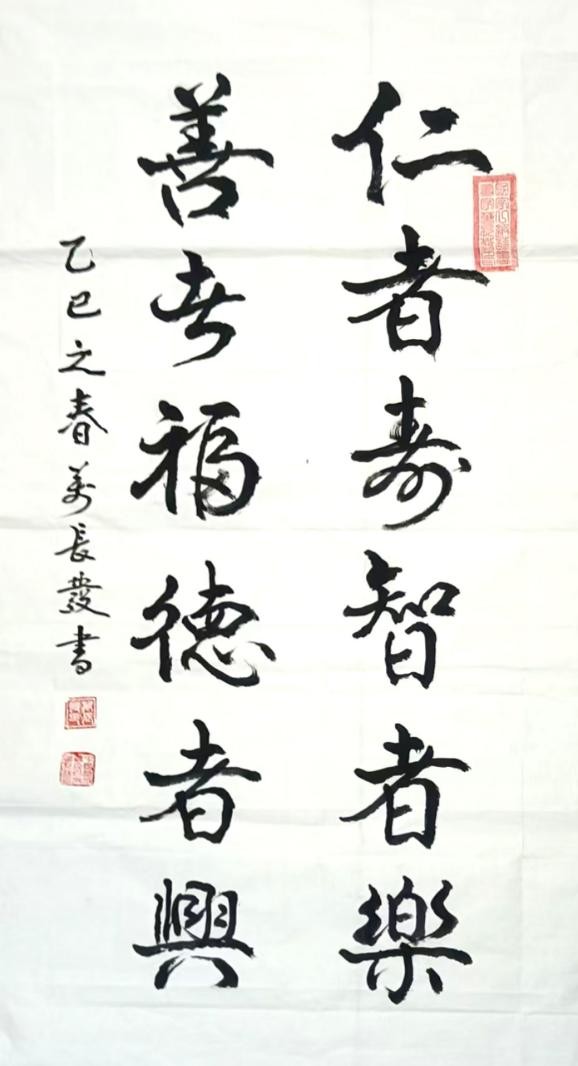 仁者寿智者樂
善者福德者興
乙巳之春萬長發書